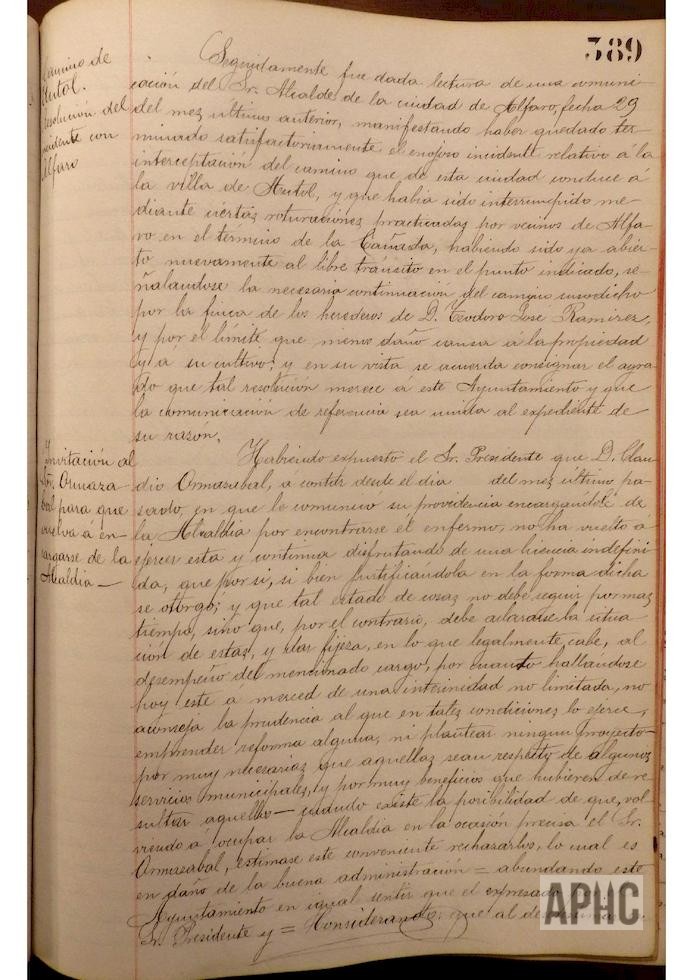 389
Camino de
Autol.
Resolución del
incidente con
Alfaro
Seguidamente fue dada lectura de una comuni-
cación del Sr. Alcalde de la ciudad de Alfaro, fecha 29
del mez ultimo anterior, manifestando haber quedado ter-
minado satisfactoriamente el enojoso incidente relativo á la
interceptación del camino que de esta ciudad conduce á
la villa de Autol, y que habia sido interrumpido me-
diante ciertas roturaciones practicadas por vecinos de Alfa-
ro en el término de la Cañada, habiendo sido ya abier-
to nuevamente al libre tránsito en el punto indicado, se-
ñalandose la necesaria continuación del camino susodicho
por la finca de los herederos de D. Teodoro José Ramirez,
y por el límite que menos daño causa á la propiedad
y á su cultivo; y en su vista se acuerda consignar el agra-
do que tal resolución merece á este Ayuntamiento y que
la comunicación de referencia sea unida al expediente de
su razón.
Invitación al
Sr. Ormaza-
bal para que
vuelva á en-
cargarse de la
Alcaldia —
Habiendo expuesto el Sr. Presidente que D. Clau-
dio Ormazabal, a contar desde el dia del mez último pa-
sado, en que le comunicó su providencia encargándole de
la Alcaldia por encontrarse él enfermo, no ha vuelto á
ejercer esta y continua disfrutando de una licencia indefini-
da, que por si, si bien justificándola en la forma dicha
se otorgó; y que tal estado de cosas no debe seguir por mas
tiempo, sino que, por el contrario, debe aclararse la situa-
ción de estas, y dar fijeza, en lo que legalmente cabe, al
desempeño del mencionado cargo, por cuanto hallándose
hoy este á merced de una interinidad no limitada, no
aconseja la prudencia al que en tales condiciones lo ejerce,
emprender reforma alguna, ni plantear ningun proyecto—
por muy necesarias que aquellas sean respecto de algunos
servicios municipales, y por muy beneficios que hubieren de re-
sultar aquello — cuando existe la posibilidad de que, vol-
viendo á ocupar la Alcaldia en la ocasión precisa el Sr.
Ormazabal, estimase este conveniente rechazarlos, lo cual es
en daño de la buena administración = abundando este
Ayuntamiento en igual sentir que el expresado
Sr. Presidente y = Considerando: que al
APHC